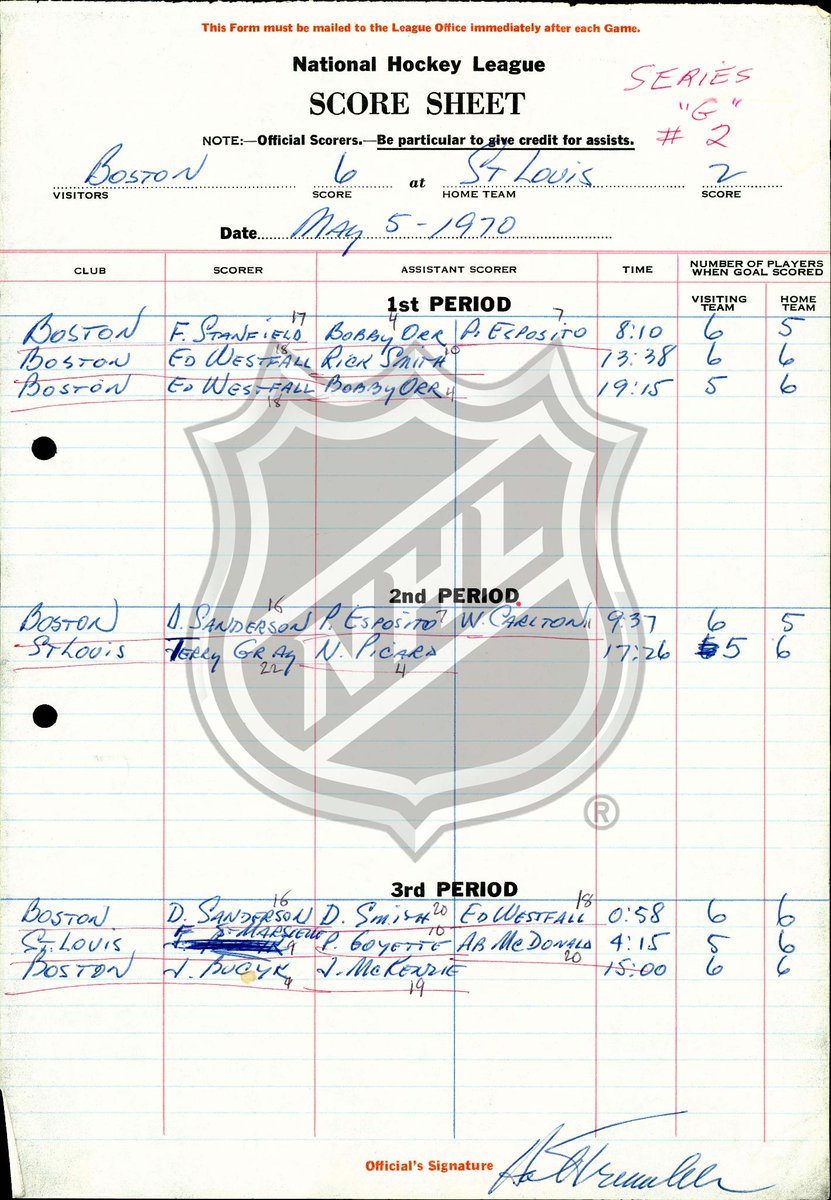 This Form must be mailed to the League Office immediately after each Game.
National Hockey League
SERIES
SCORE SHEET
"G"
# 2
NOTE:—Official Scorers.—Be particular to give credit for assists.
BOSTON 6 at ST LOUIS 2
VISITORS SCORE HOME TEAM SCORE
Date MAY 5-1970
CLUB SCORER ASSISTANT SCORER TIME NUMBER OF PLAYERS WHEN GOAL SCORED
VISITING TEAM HOME TEAM
1st PERIOD
BOSTON F. STANFIELD 17 BOBBY ORR 4 P. ESPOSITO 7 8:10 6 5
BOSTON ED WESTFALL 18 RICK SMITH 10 13:38 6 6
BOSTON ED WESTFALL 18 BOBBY ORR 4 19:15 5 6
NHL
2nd PERIOD
BOSTON D. SANDERSON 16 P. ESPOSITO 7 W. CARLTON 11 9:37 6 5
ST LOUIS TERRY GRAY 22 N. PICARD 4 17:26 5 6
®
3rd PERIOD
BOSTON D. SANDERSON 16 D. SMITH 20 ED WESTFALL 18 0:58 6 6
ST. LOUIS F. ST MARSEILLE 9 P. GOYETTE 10 AB MCDONALD 20 4:15 5 6
BOSTON J. BUCYK 9 J. MCKENZIE 19 15:00 6 6
Official's Signature